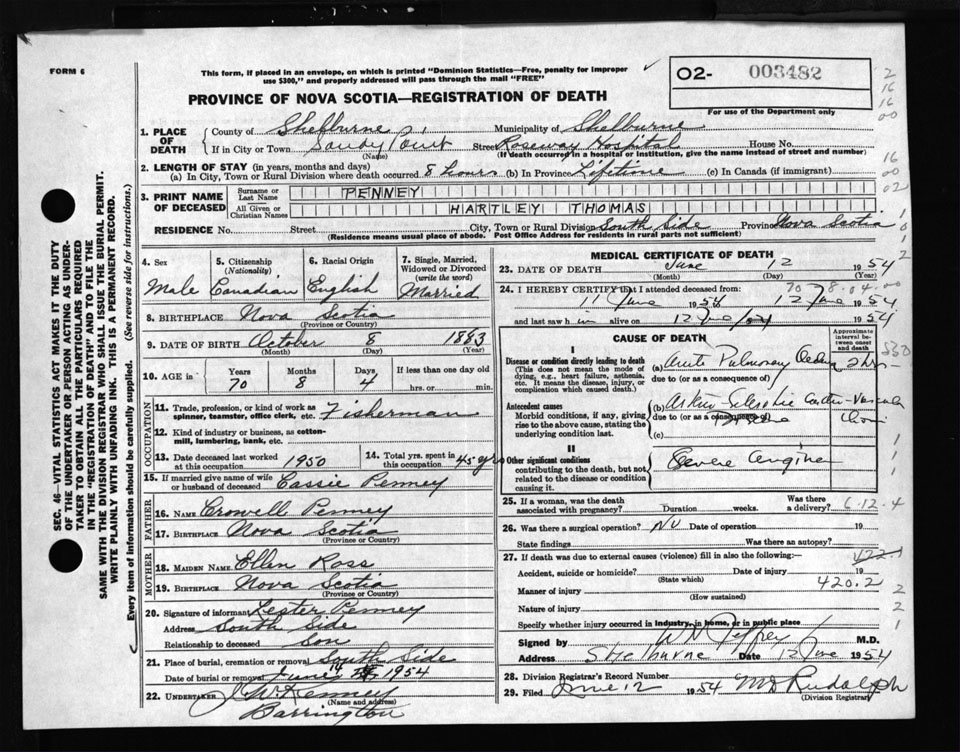 FORM 6
This form, if placed in an envelope, on which is printed "Dominion Statistics—Free, penalty for improper
use $300," and properly addressed will pass through the mail "FREE"
O2- 003482
For use of the Department only
PROVINCE OF NOVA SCOTIA—REGISTRATION OF DEATH
1. PLACE OF DEATH
County of Shelburne Municipality of Shelburne
If in City or Town Sandy Point Street Roseway Hospital House No.
(Name) (If death occurred in a hospital or institution, give the name instead of street and number)
2. LENGTH OF STAY (in years, months and days)
(a) In City, Town or Rural Division where death occurred 8 hours (b) In Province Lifetime (c) In Canada (if immigrant)
3. PRINT NAME OF DECEASED
Surname or Last Name PENNEY
All Given or Christian Names HARTLEY THOMAS
RESIDENCE No. Street City, Town or Rural Division South Side Province Nova Scotia
(Residence means usual place of abode. Post Office Address for residents in rural parts not sufficient)
4. Sex Male
5. Citizenship (Nationality) Canadian
6. Racial Origin English
7. Single, Married, Widowed or Divorced (write the word) Married
8. BIRTHPLACE Nova Scotia
(Province or Country)
9. DATE OF BIRTH October 8 1883
(Month) (Day) (Year)
10. AGE in Years 70 Months 8 Days 4 If less than one day old hrs. or min.
OCCUPATION
11. Trade, profession, or kind of work as spinner, teamster, office clerk, etc. Fisherman
12. Kind of industry or business, as cotton-mill, lumbering, bank, etc.
13. Date deceased last worked at this occupation 1950
14. Total yrs. spent in this occupation 45 yrs
15. If married give name of wife or husband of deceased Cassie Penney
FATHER
16. NAME Crowell Penney
17. BIRTHPLACE Nova Scotia
(Province or Country)
MOTHER
18. MAIDEN NAME Ellen Ross
19. BIRTHPLACE Nova Scotia
(Province or Country)
20. Signature of informant Lester Penney
Address South Side
Relationship to deceased Son
21. Place of burial, cremation or removal South Side
Date of burial or removal June 14 1954
22. UNDERTAKER J. W. Kenney
(Name and address)
Barrington
MEDICAL CERTIFICATE OF DEATH
23. DATE OF DEATH June 12 1954
(Month) (Day) (Year)
24. I HEREBY CERTIFY that I attended deceased from:
11 June 1954 12 June 1954
and last saw h im alive on 12 June 1954
CAUSE OF DEATH
Approximate interval between onset and death
I
Disease or condition directly leading to death
(This does not mean the mode of dying, e.g., heart failure, asthenia, etc. It means the disease, injury, or complication which caused death.)
(a) Acute Pulmonary Oedema 2 hrs
due to (or as a consequence of)
Antecedent causes
Morbid conditions, if any, giving rise to the above cause, stating the underlying condition last.
(b) Arterio-Sclerotic Cardio-Vascular
due to (or as a consequence of)
(c)
II
Other significant conditions
contributing to the death, but not related to the disease or condition causing it.
Severe Angina
25. If a woman, was the death associated with pregnancy? Duration weeks Was there a delivery?
6.12.4
26. Was there a surgical operation? NO Date of operation 19
State findings Was there an autopsy?
27. If death was due to external causes (violence) fill in also the following:—
Accident, suicide or homicide? Date of injury 19
(State which)
Manner of injury 420.2
(How sustained)
Nature of injury
Specify whether injury occurred in industry, in home, or in public place
Signed by W N Jeffrey M.D.
Address Shelburne Date 12 June 1954
28. Division Registrar's Record Number
29. Filed June 12 1954 M D Rudolph
(Division Registrar)
SEC. 46—VITAL STATISTICS ACT MAKES IT THE DUTY
OF THE UNDERTAKER OR PERSON ACTING AS UNDER-
TAKER TO OBTAIN ALL THE PARTICULARS REQUIRED
IN THE "REGISTRATION OF DEATH" AND TO FILE THE
SAME WITH THE DIVISION REGISTRAR WHO SHALL ISSUE THE BURIAL PERMIT.
WRITE PLAINLY WITH UNFADING INK. THIS IS A PERMANENT RECORD.
Every item of information should be carefully supplied. (See reverse side for instructions.)